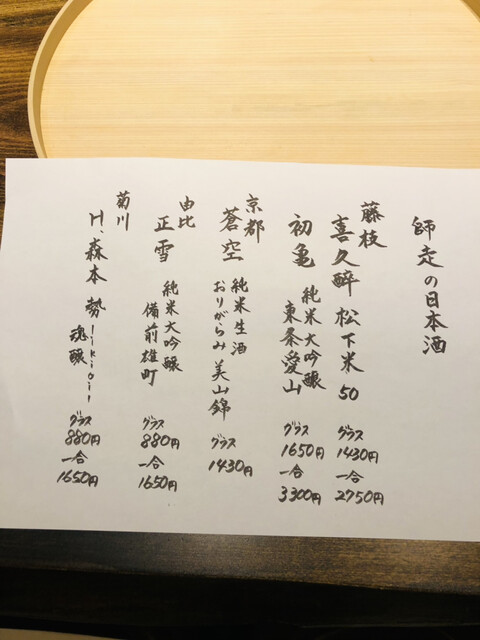 師走の日本酒
藤枝
喜久醉 松下米 50
グラス
1430円
一合
2750円
初亀 純米大吟醸
東条愛山
グラス
1650円
一合
3300円
京都
蒼空 純米生酒
おりがらみ 美山錦
グラス
1430円
由比
正雪 純米大吟醸
備前雄町
グラス
880円
一合
1650円
菊川
H.森本 勢
魂醸
グラス
880円
一合
1650円